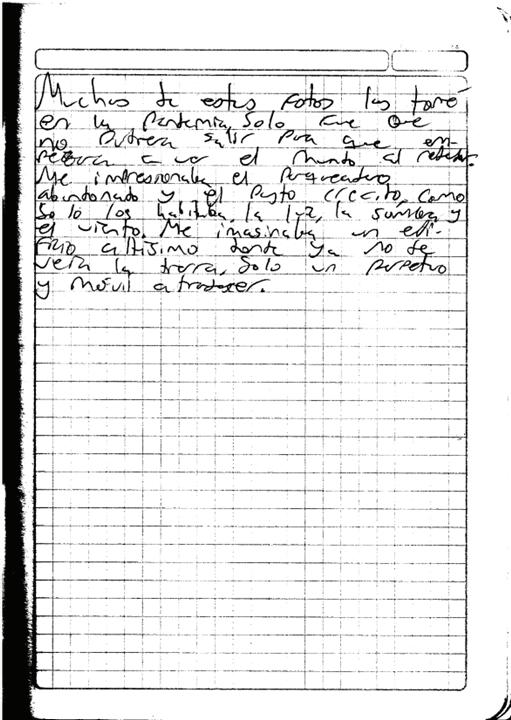 Muchas de estas fotos las tomé
en la Pandemia, Solo fue que
no pudiera salir para que em-
pezara a ver el mundo al rededor.
Me impresionaba el Parqueadero
abandonado y el Pasto crecito, como
solo los habitaba la luz, la sombra y
el viento. Me imaginaba un edi-
ficio altísimo donde ya no se
veía la tierra, Solo un perpetuo
y móvil atardecer.